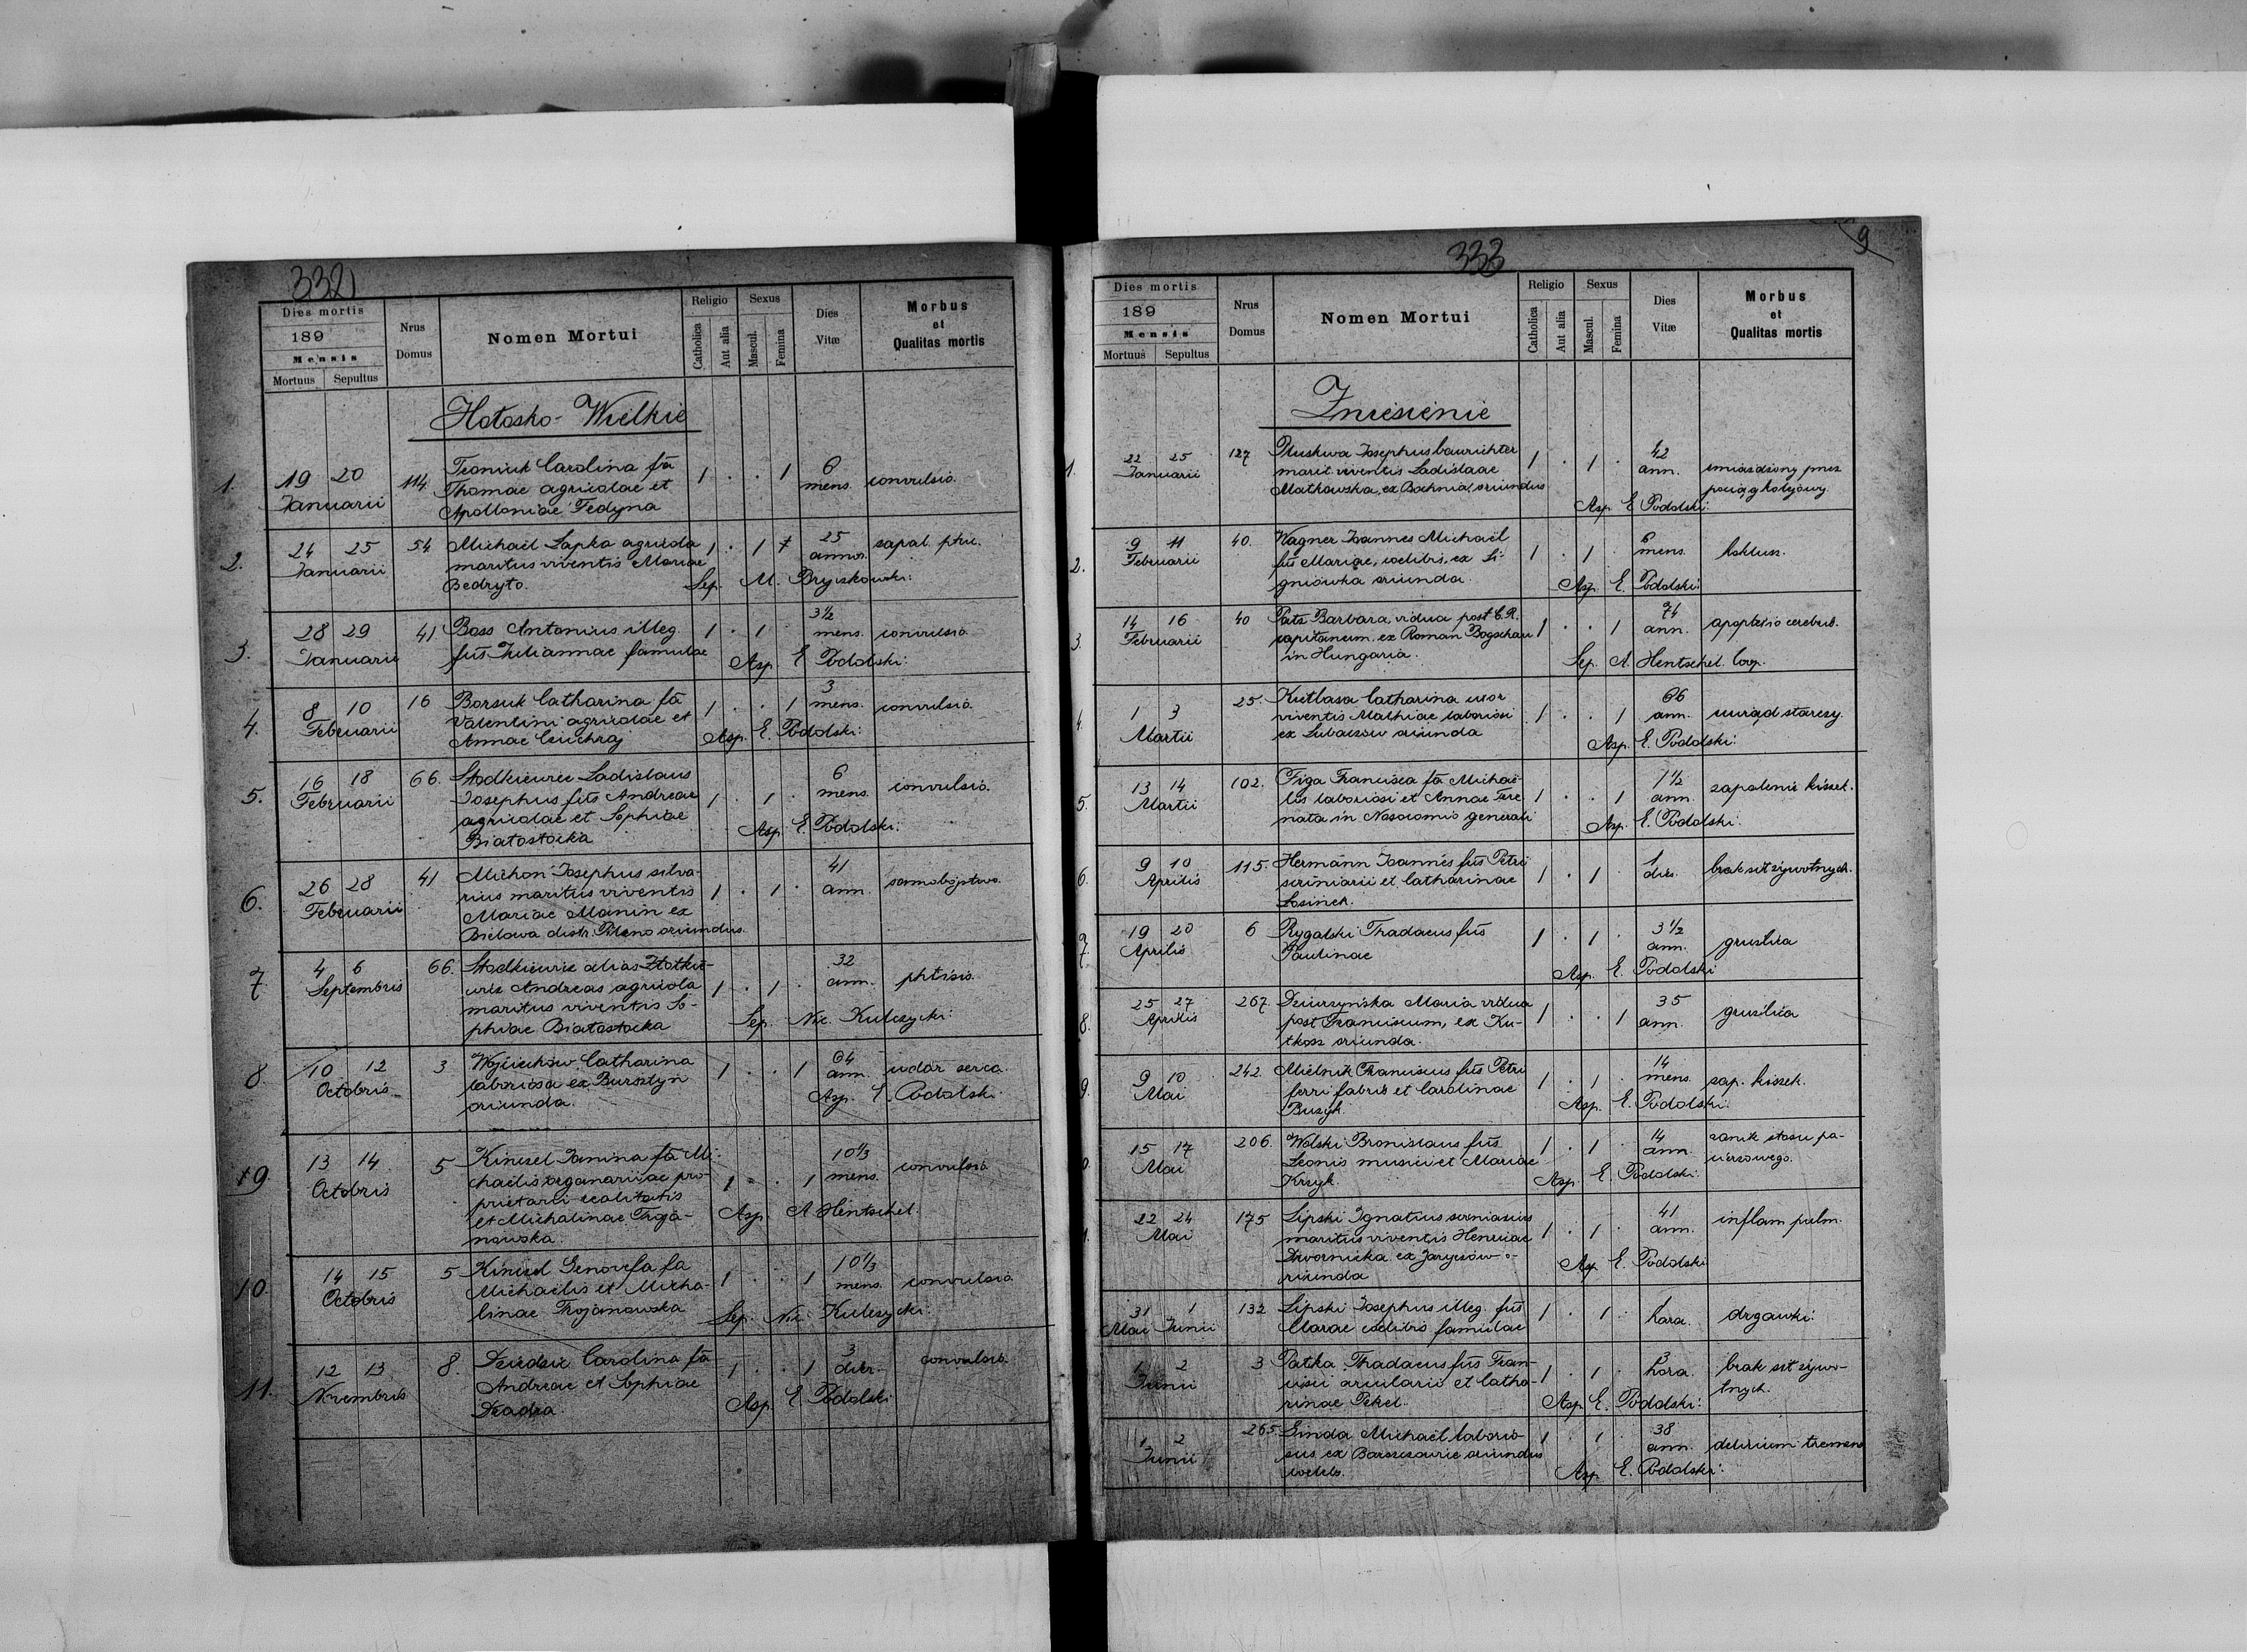 332
Dies mortis
189
Mensis
Mortuus Sepultus
Nrus
Domus
Nomen Mortui
Religio
Catholica
Aut alia
Sexus
Mascul.
Femina
Dies
Vitæ
Morbus
et
Qualitas mortis
Hołosko-Wielkie
1. 19 20 Januarii 114
Carolina fa 1 . . 1 6 mens. convulsio.
Thomae agricolae et
Apolloniae Fedyna
2. 24 25 Januarii 54
Michael Łapka agricola 1 . 1 25 annor. zapal. płuc.
maritus viventis Mariae
Bedryło. Sep. M.
3. 28 29 Januarii 41
Bass Antonius illeg. 1 . 1 3 1/2 mens. convulsio.
fus Juliannae famulae
Asp. E. Podolski.
4. 8 10 Februarii 16
Borsuk Catharina fa 1 . . 1 3 mens. convulsio.
Valentini agricolae et
Annae
Asp. E. Podolski.
5. 16 18 Februarii 66.
Słodkiewicz Ladislaus 6 mens. convulsio.
Josephus fus Andreae 1 . 1 .
agricolae et Sophiae
Białostocka
Asp. E. Podolski.
6. 26 28 Februarii 41
Michoń Josephus silva- 41 ann. samobójstwo.
rius maritus viventis 1 . 1 .
Mariae Manin ex
Bielowa distr. Pilzno oriundus.
7 4 6 Septembris 66.
Słodkiewicz alias Złotkie- 32 ann. phtisis.
wicz Andreas agricola 1 . 1 .
maritus viventis So-
phiae Białostocka
Sep. Nic. Kulczycki.
8. 10 12 Octobris 3
Wojciechów Catharina 1 . . 1 64 ann. udar serca.
laboriosa ex Bursztyn
oriunda.
Asp. E. Podolski.
9. 13 14 Octobris 5
Kinczel Janina fa Mi- 10 1/3 mens. convulsio.
chaelis organarii ac pro-
prietarii realitatis
et Michalinae Troja-
nowska.
Asp. A. Hentschel.
10. 14 15 Octobris 5
Kinczel Genovefa fa 1 . . 1 10 1/3 mens. convulsio.
Michaelis et Micha-
linae Trojanowska
Sep. Nic. Kulczycki.
11. 12 13 Novembris 8.
Carolina fa 1 . . 1 3 dier. convulsio.
Andreae et Sophiae
Asp. E. Podolski
333
9
Dies mortis
189
Mensis
Mortuus Sepultus
Nrus
Domus
Nomen Mortui
Religio
Catholica
Aut alia
Sexus
Mascul.
Femina
Dies
Vitæ
Morbus
et
Qualitas mortis
Zniesienie
1. 22 25 Januarii 127
Pluskwa Josephus baurichter 1 . 1 . 42 ann. zmiażdżony przez
marit. viventis Ladislaae pociąg kolejowy.
Matkowska, ex Bochnia oriundus
Asp. E. Podolski.
2. 9 11 Februarii 40.
Wagner Joannes Michael 1 . 1 . 6 mens. koklusz.
fus Mariae, coelibis, ex Si-
gniówka oriunda.
Asp. E. Podolski.
3. 14 16 Februarii 40
Barbara, vidua post C.R. 1 . . 1 74 ann. apoplexio cerebri.
capitaneum, ex Roman Bogschan
in Hungaria.
Sep. A. Hentschel. Coop.
4. 1 3 Martii 25.
Kutlasa Catharina uxor 1 . . 1 66 ann. uwiąd starczy.
viventis Mathiae laboriosi
ex Lubaczów oriunda
Asp. E. Podolski.
5. 13 14 Martii 102.
Figa Francisca fa Michae- 1 . . 1 1 1/2 ann. zapalenie kiszek.
lis laboriosi et Annae
nata in Nosocomio generali
Asp. E. Podolski.
6. 9 10 Aprilis 115.
Hermann Joannes fus Petri 1 . 1 . 1 dies. brak sił żywotnych.
scriniarii et Catharinae
Łosinek.
7. 19 20 Aprilis 6
Rygalski Thadaeus fus 1 . 1 3 1/2 ann. gruźlica
Paulinae
Asp. E. Podolski
8. 25 27 Aprilis 267.
Dzierzyńska Maria vidua 1 . . 1 35 ann. gruźlica
post Franciscum, ex Ku-
tkosz oriunda.
9. 9 10 Mai 242.
Mielnik Franciscus fus Petri 1 . 1 . 14 mens. zap. kiszek.
ferri fabris et Carolinae
Asp. E. Podolski.
15 17 Mai 206.
Wolski Bronislaus fus 1 . 1 . 14 ann. zanik stosu pa-
Leonis musici et Mariae cierzowego.
Krzyk.
Asp. E. Podolski.
22 24 Mai 175
Lipski Ignatius scriniarius 1 . 1 . 41 ann. inflam pulm.
maritus viventis
Dwornicka ex Jaryczów o-
riunda
Asp. E. Podolski
31 1 Mai Junii 132
Lipski Josephus illeg. fus 1 . 1 . 1 hora. drgawki.
Marae coelibis famulae
1 2 Junii 3
Patka Thadaeus fus Fran- 1 . 1 . 3 hora. brak sił żywo-
cisci arcularii et Catha- tnych.
rinae Pekel.
Asp. E. Podolski.
1 2 Junii 265.
Ginda Michael laborio- 1 . 1 . 38 ann. delirium tremens
sus ex Barszczowice oriundus
coelebs.
Asp. E. Podolski.